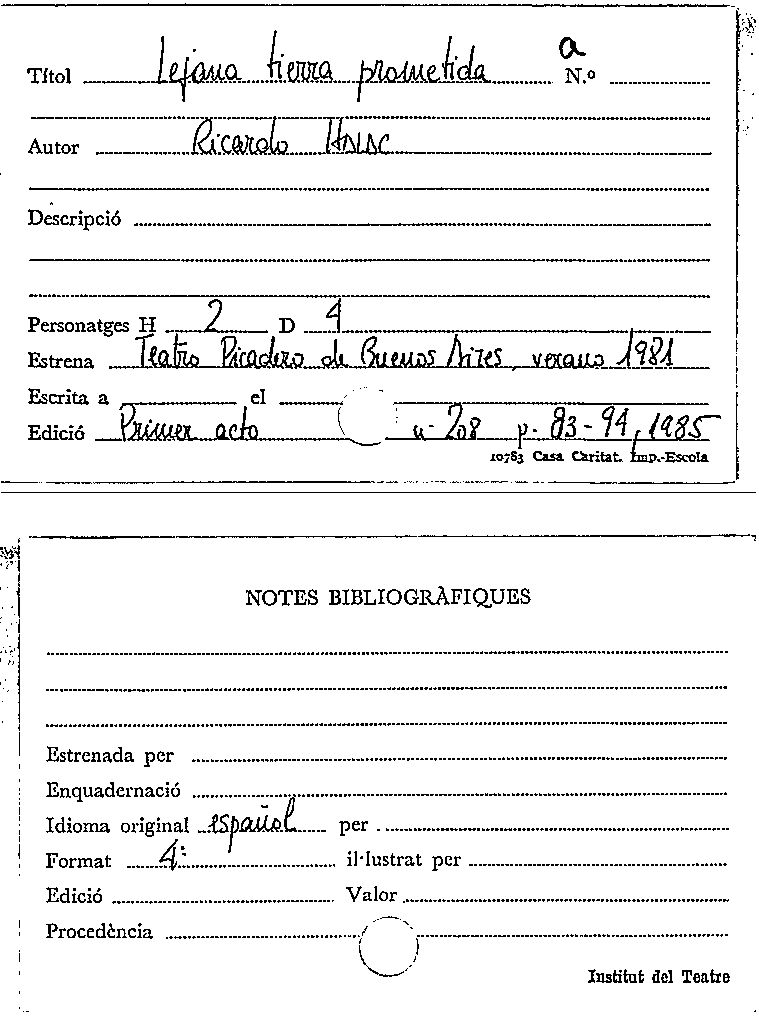 a
Títol Lejana tierra prometida N.º
Autor Ricardo HALAC
Descripció
Personatges H 2 D 4
Estrena Teatro Picadero de Buenos Aires, verano 1981
Escrita a el
Edició Primer acto n- 208 p. 83-94, 1985
10783 Casa Caritat. Imp.-Escola
NOTES BIBLIOGRÀFIQUES
Estrenada per
Enquadernació
Idioma original español per
Format 4º il·lustrat per
Edició Valor
Procedència
Institut del Teatre